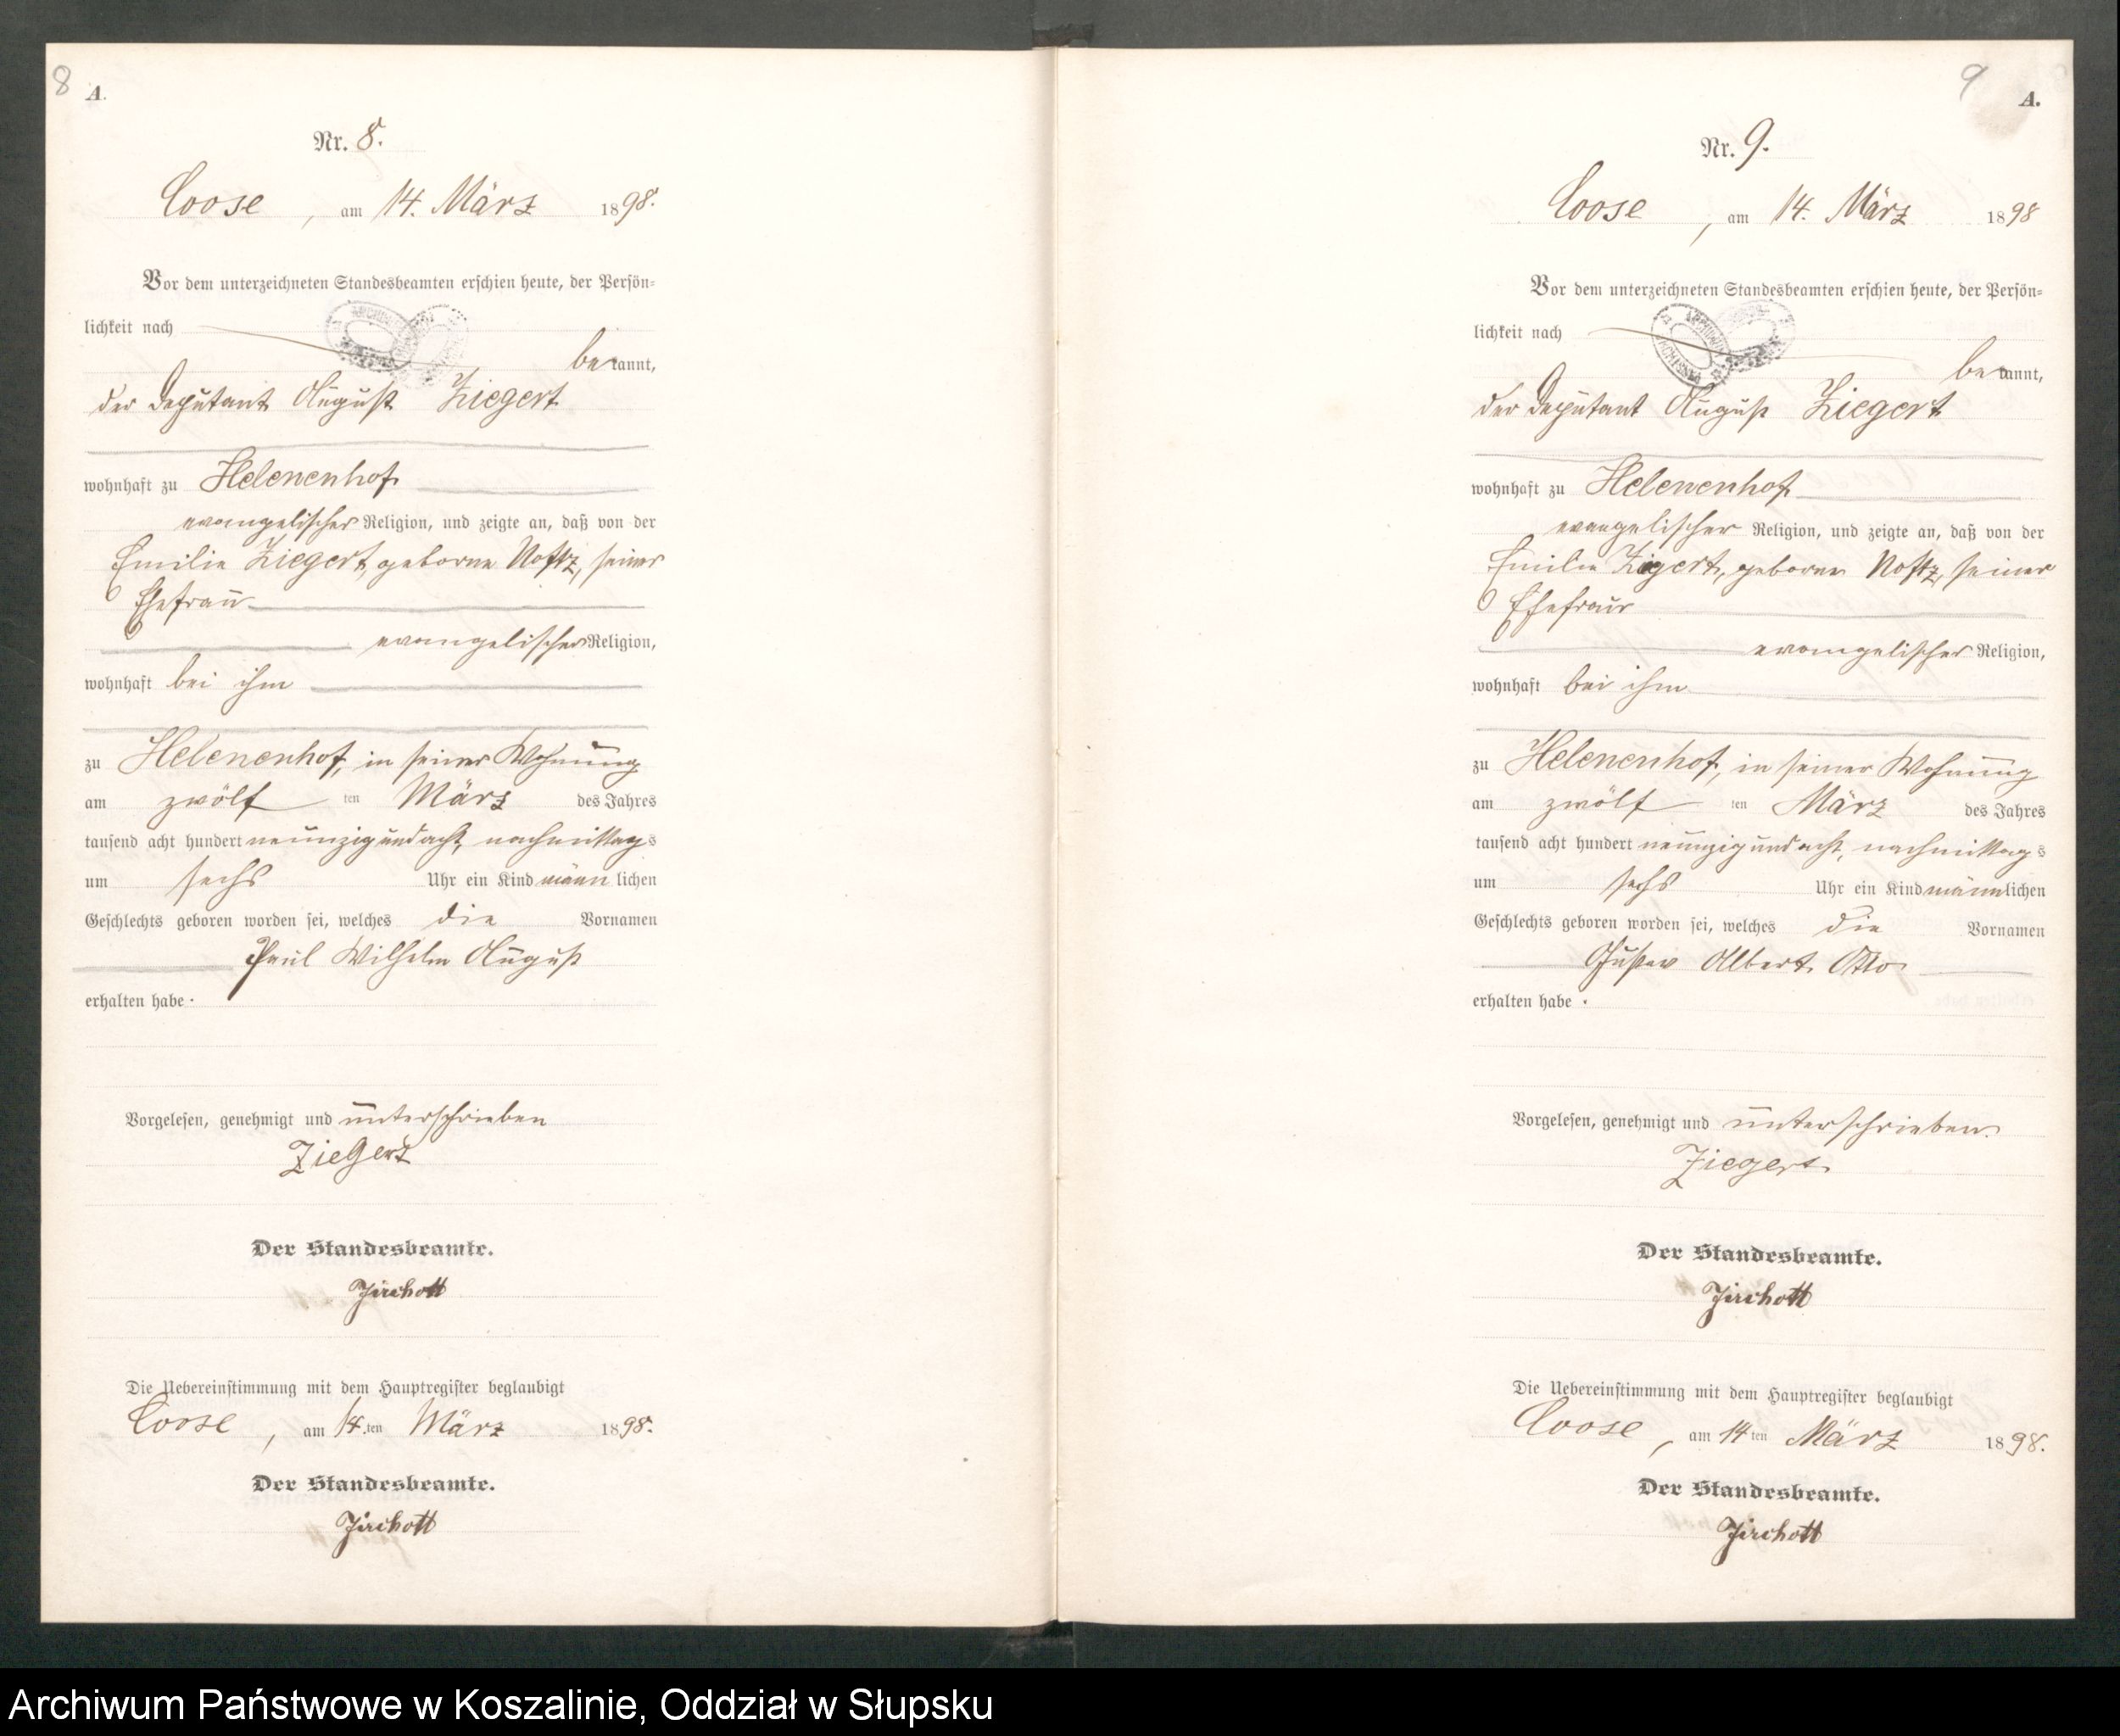 8
A.
Nr. 8.
Coose, am 14. März 1898.
Vor dem unterzeichneten Standesbeamten erschien heute, der Persön-
lichkeit nach
bekannt,
der Deputant August Ziegert
wohnhaft zu Helenenhof
evangelischer Religion, und zeigte an, daß von der
Emilie Ziegert, geborne Nofftz, seiner
Ehefrau
evangelischer Religion,
wohnhaft bei ihm
zu Helenenhof, in seiner Wohnung
am zwölf ten März des Jahres
tausend acht hundert neunzig und acht, nachmittags
um sechs Uhr ein Kind männlichen
Geschlechts geboren worden sei, welches die Vornamen
Paul Wilhelm August
erhalten habe.
Vorgelesen, genehmigt und unterschrieben
Ziegert
Der Standesbeamte.
Jirchott
Die Uebereinstimmung mit dem Hauptregister beglaubigt
Coose, am 14.ten März 1898.
Der Standesbeamte.
Jirchott
9
A.
Nr. 9.
Coose, am 14. März 1898
Vor dem unterzeichneten Standesbeamten erschien heute, der Persön-
lichkeit nach
bekannt,
der Deputant August Ziegert
wohnhaft zu Helenenhof
evangelischer Religion, und zeigte an, daß von der
Emilie Ziegert, geborne Nofftz, seiner
Ehefrau
evangelischer Religion,
wohnhaft bei ihm
zu Helenenhof, in seiner Wohnung
am zwölf ten März des Jahres
tausend acht hundert neunzig und acht, nachmittags
um sechs Uhr ein Kind männlichen
Geschlechts geboren worden sei, welches die Vornamen
Gustav Albert Otto
erhalten habe.
Vorgelesen, genehmigt und unterschrieben.
Ziegert.
Der Standesbeamte.
Jirchott
Die Uebereinstimmung mit dem Hauptregister beglaubigt
Coose, am 14ten März 1898.
Der Standesbeamte.
Jirchott
Archiwum Państwowe w Koszalinie, Oddział w Słupsku